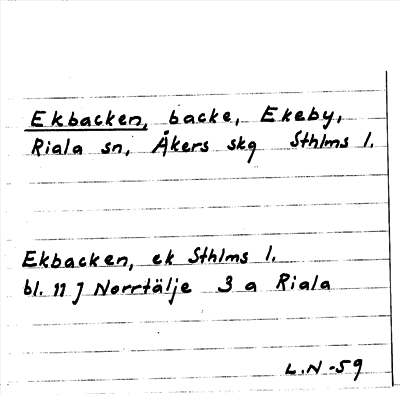 Ekbacken, backe, Ekeby,
Riala sn, Åkers skg Sthlms l.
Ekbacken, ek Sthlms l.
bl. 11 J Norrtälje 3 a Riala
L.N -59